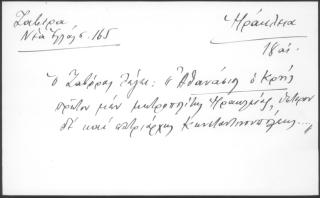 Ζαβίρα
Νέα Ἑλλάς. 165
Ἡράκλεια
18 αἰ.
Ὁ Ζαβίρας λέγει: ὁ Ἀθανάσιος ὁ Κρής
πρῶτον μὲν μητροπολίτης Ἡρακλείας, ὕστερον
δὲ καὶ πατριάρχης Κωνσταντινουπόλεως...